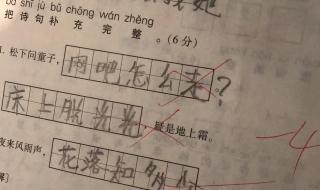 bǎ shī jù bǔ chōng wán zhěng
把诗句补充完整。(6分)
1. 松下问童子, 网吧怎么走?
床上脱光光, 疑是地上霜。
夜来风雨声, 花落知多少
-4